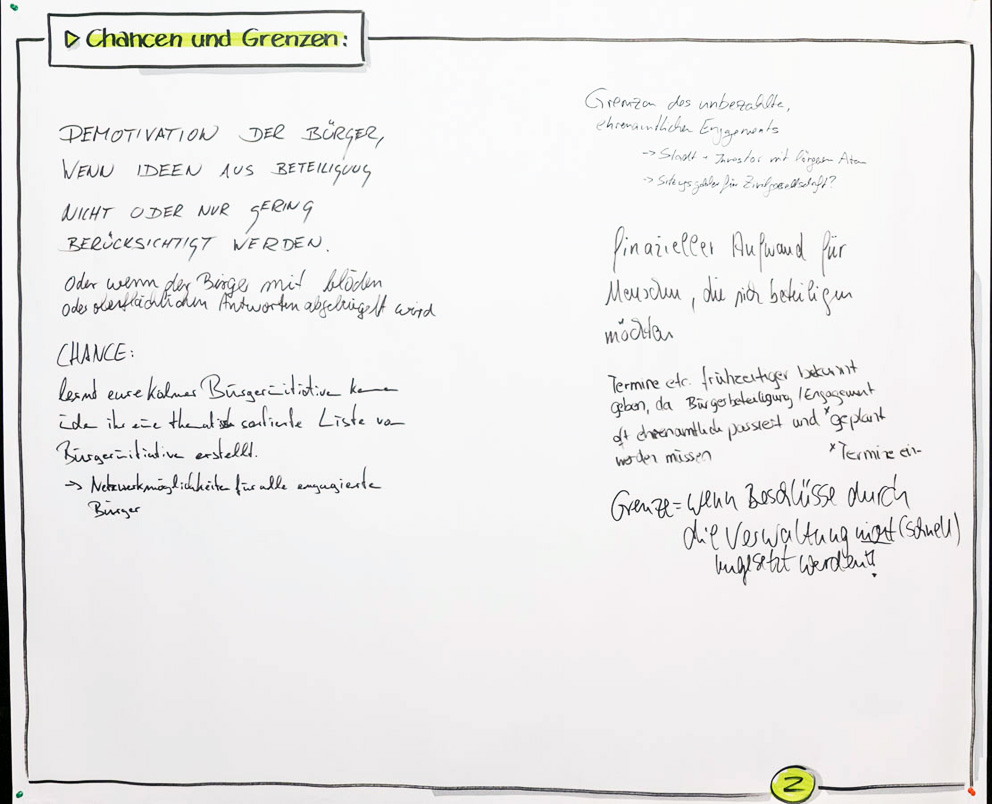 Chancen und Grenzen:
DEMOTIVATION DER BÜRGER,
WENN IDEEN AUS BETEILIGUNG
NICHT ODER NUR GERING
BERÜCKSICHTIGT WERDEN.
Oder wenn der Bürger mit blöden
oder oberflächlichen Antworten abgebügelt wird
CHANCE:
lernt eure Kölner Bürgerinitiative kennen
indem ihr eine thematisch sortierte Liste von
Bürgerinitiative erstellt.
→ Netzwerkmöglichkeiten für alle engagierte
Bürger
Grenzen des unbezahlte,
ehrenamtlichen Engagements
→ Stadt + Investor mit längerem Atem
→ Sitzungsgelder für Zivilgesellschaft?
finazieller Aufwand für
Menschen, die sich beteiligen
möchten
Termine etc. frühzeitiger bekannt
geben, da Bürgerbeteiligung/Engagement
oft ehrenamtlich passiert und *geplant
werden müssen
*Termine ein-
Grenze = wenn Beschlüsse durch
die Verwaltung nicht (schnell)
umgesetzt werden!
2